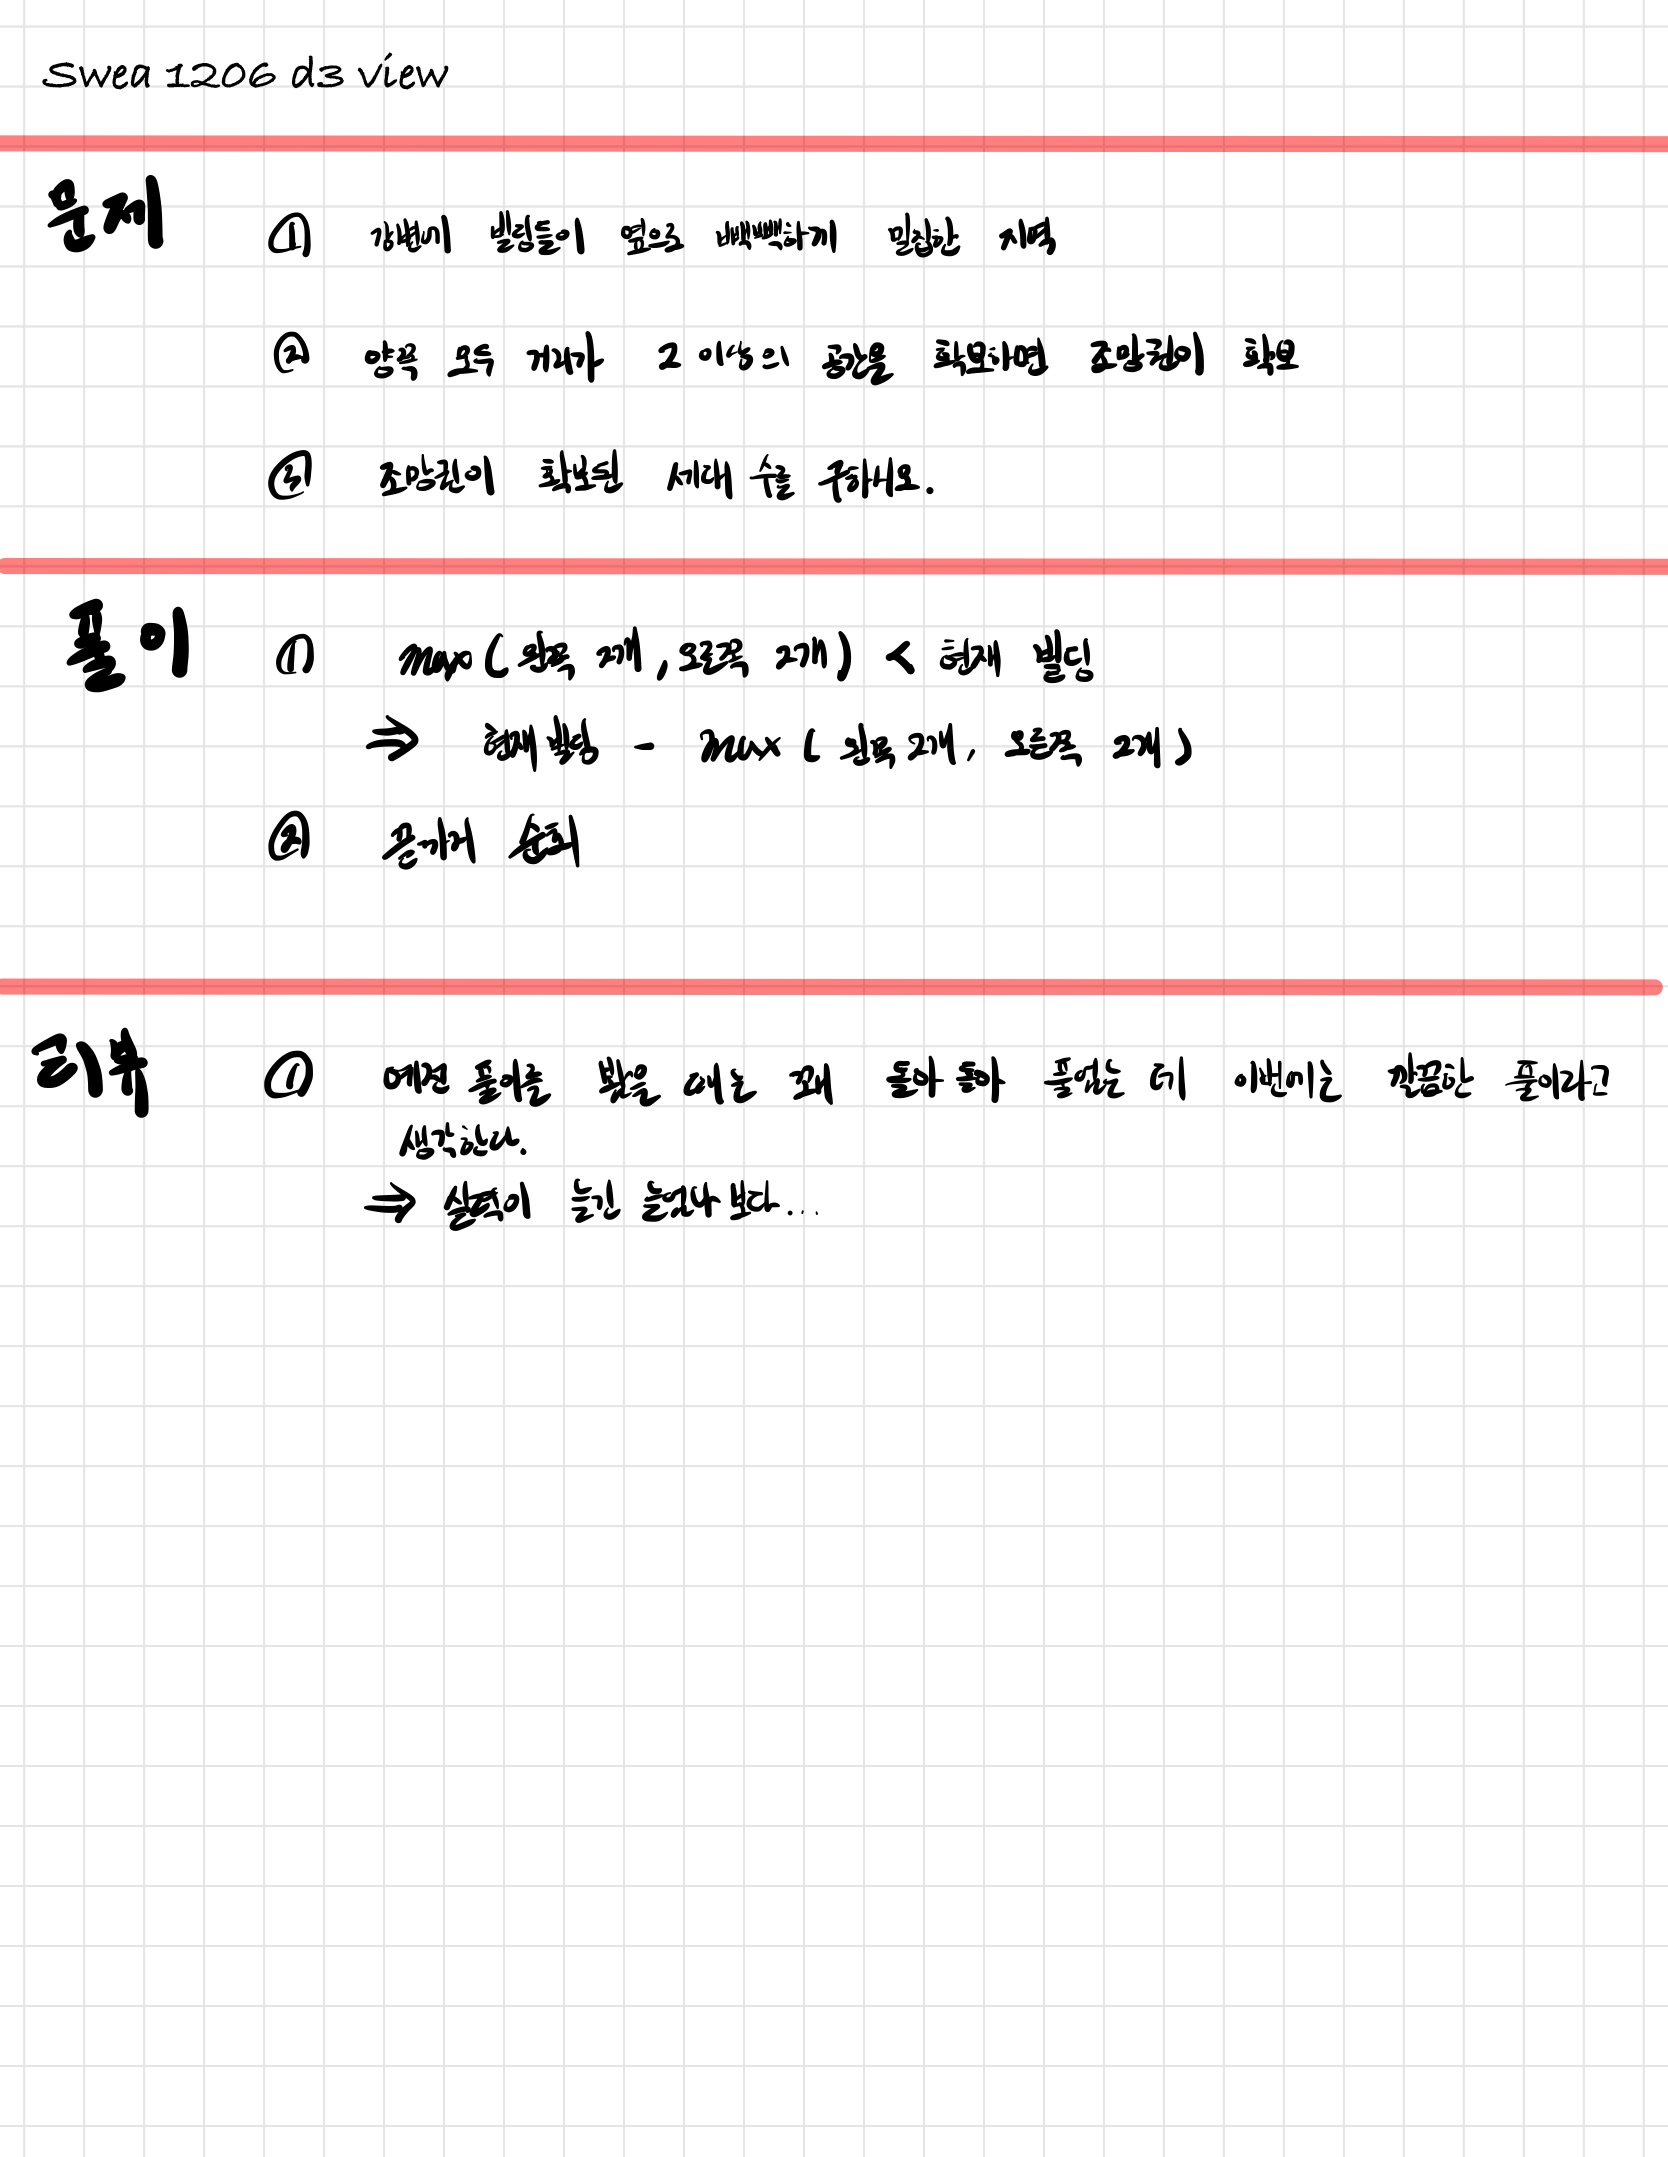 Swea 1206 d3 view
문제
① 강변에 빌딩들이 옆으로 빽빽하게 밀집한 지역
② 양쪽 모두 거리가 2 이상의 공간을 확보하면 조망권이 확보
③ 조망권이 확보된 세대 수를 구하시오.
풀이
① max(왼쪽 2개, 오른쪽 2개) < 현재 빌딩
⇒ 현재 빌딩 - max(왼쪽 2개, 오른쪽 2개)
② 끝까지 순회
리뷰
① 예전 풀이를 봤을 때는 꽤 돌아 돌아 풀었는 데 이번에는 깔끔한 풀이라고
생각한다.
⇒ 실력이 늘긴 늘었나 보다...